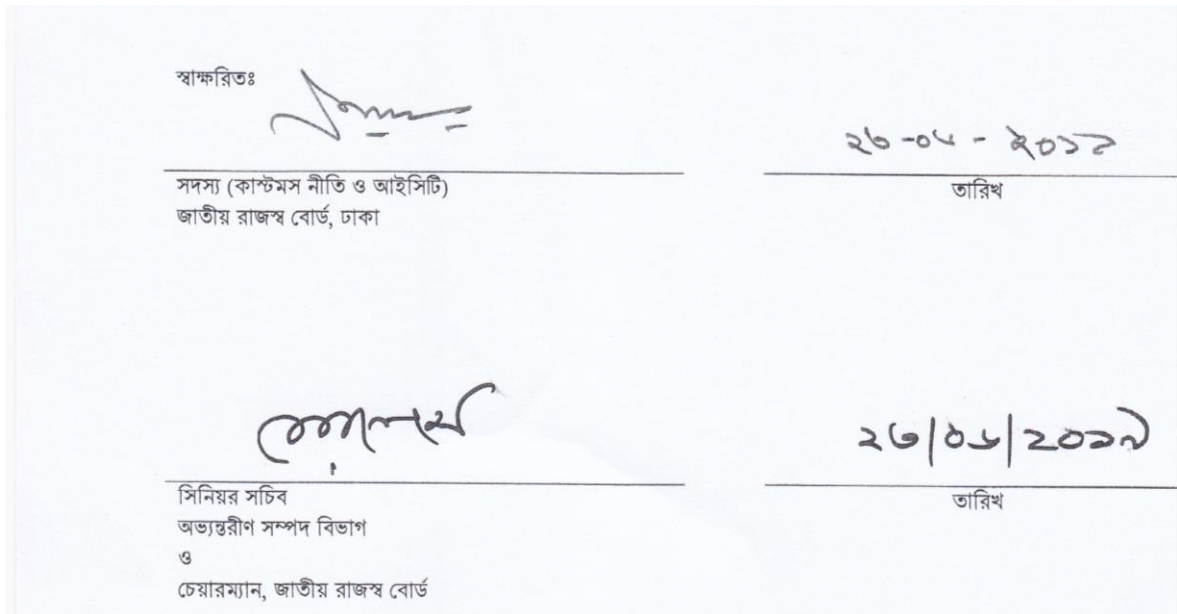 স্বাক্ষরিতঃ
সদস্য (কাস্টমস নীতি ও আইসিটি)
জাতীয় রাজস্ব বোর্ড, ঢাকা
তারিখ
সিনিয়র সচিব
অভ্যন্তরীণ সম্পদ বিভাগ
ও
চেয়ারম্যান, জাতীয় রাজস্ব বোর্ড
তারিখ